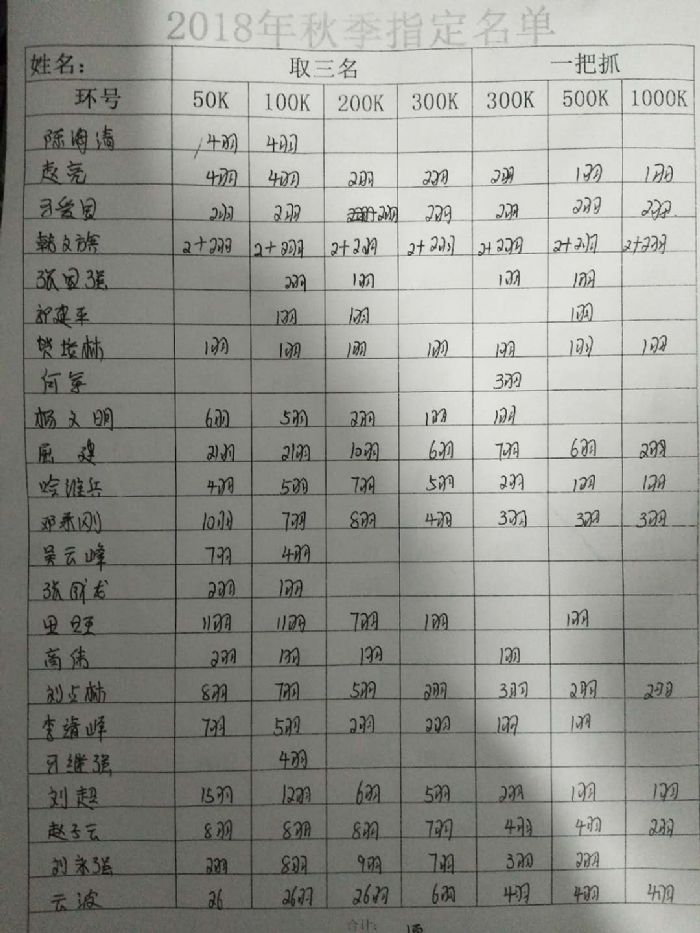 2018年秋季指定名单
姓名: 取三名 一把抓
环号 50K 100K 200K 300K 300K 500K 1000K
陈海清 4羽 4羽
赵亮 4羽 4羽 2羽 2羽 2羽 1羽 1羽
2羽 2羽 2羽 2羽 2羽 2羽 2羽
韩文旗 2+2羽 2+2羽 2+2羽 2+2羽 2+2羽 2+2羽 2+2羽
张国强 2羽 1羽 1羽 1羽
郭建平 1羽 1羽 1羽
樊培林 1羽 1羽 1羽 1羽 1羽 1羽 1羽
何军 3羽
杨文明 6羽 5羽 2羽 1羽 1羽
建 21羽 21羽 10羽 6羽 7羽 6羽 2羽
哈维兵 4羽 5羽 7羽 5羽 2羽 1羽 1羽
邓永刚 10羽 7羽 8羽 4羽 3羽 3羽 3羽
吴云峰 7羽 4羽
张成龙 2羽 1羽
田 11羽 11羽 7羽 1羽 1羽
高伟 2羽 1羽 1羽 1羽
刘占林 8羽 7羽 5羽 2羽 3羽 2羽 2羽
李靖峰 7羽 5羽 2羽 2羽 1羽 1羽
继强 4羽
刘超 15羽 12羽 6羽 5羽 2羽 1羽 1羽
赵子云 8羽 8羽 8羽 7羽 4羽 4羽 2羽
刘永强 2羽 8羽 9羽 7羽 3羽 2羽
云波 26 26羽 26羽 6羽 4羽 4羽 4羽
合计: